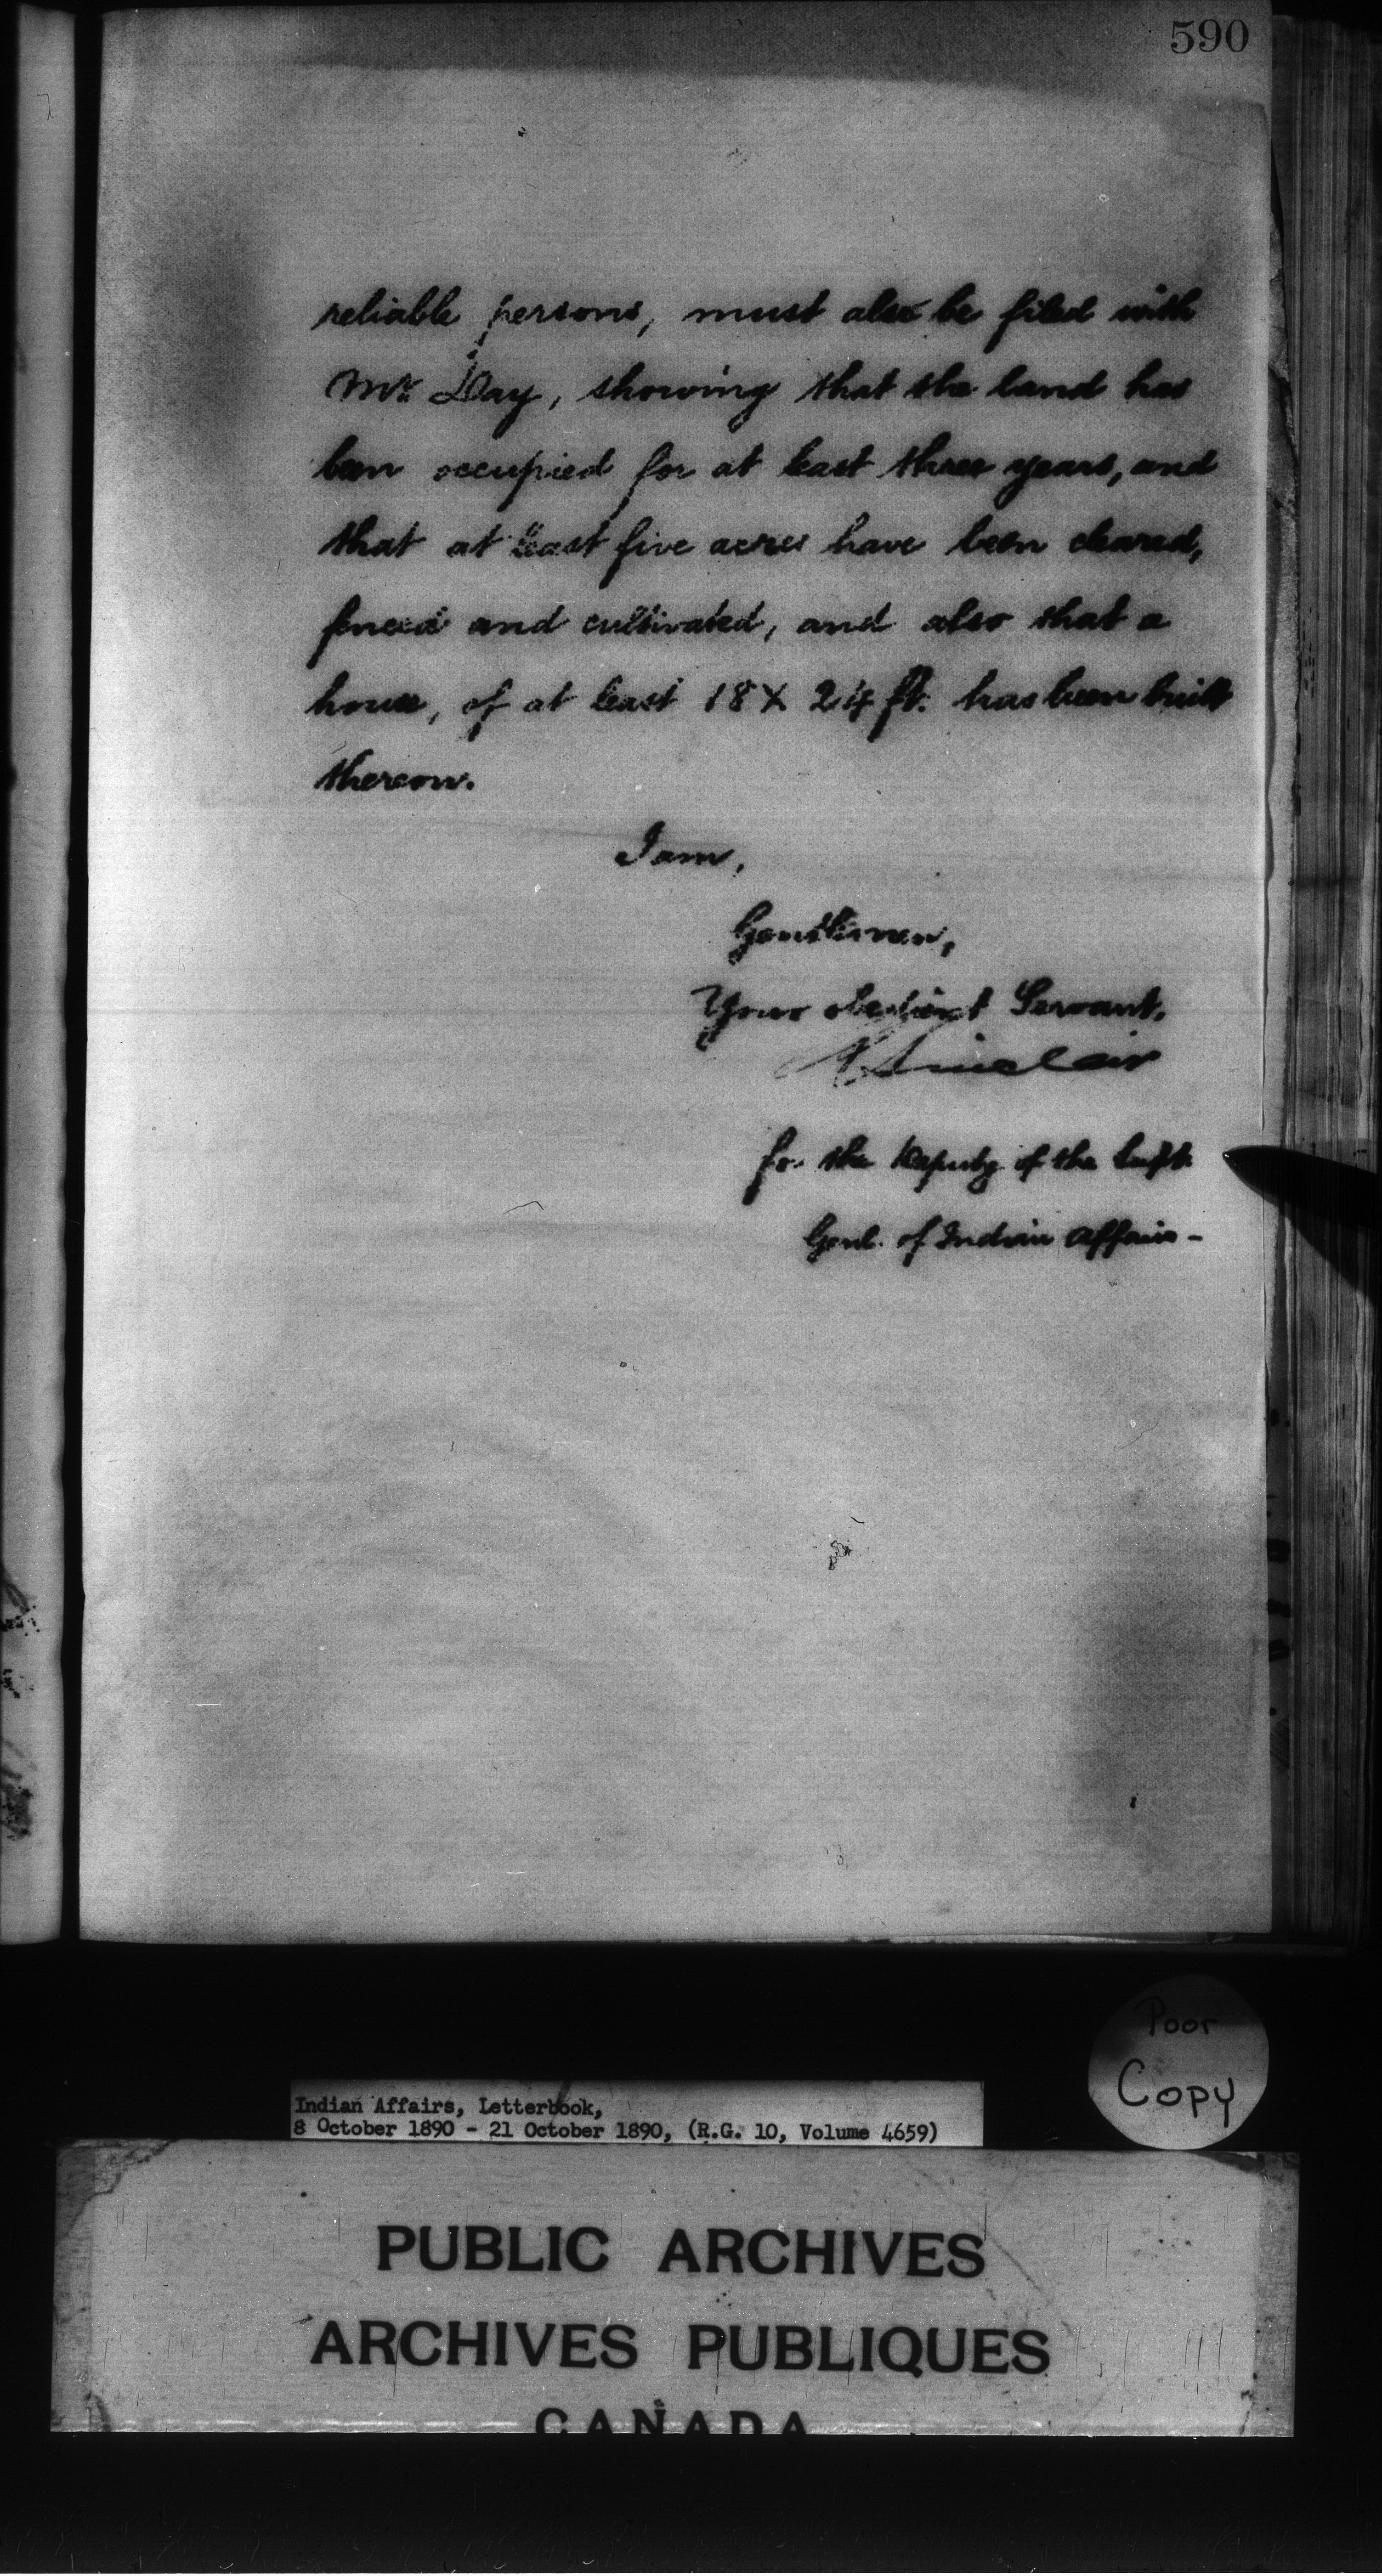 590
reliable persons, must also be filed with
Mr. Day, showing that the land has
been occupied for at least three years, and
that at least five acres have been cleared,
fenced and cultivated, and also that a
house, of at least 18 X 24 ft. has been built
thereon.
I am,
Gentlemen,
Your obedient Servant,
Sinclair
for the Deputy of the Supt.
Genl. of Indian Affairs -
Poor
Copy
Indian Affairs, Letterbook,
8 October 1890 - 21 October 1890, (R.G. 10, Volume 4659)
PUBLIC ARCHIVES
ARCHIVES PUBLIQUES
CANADA